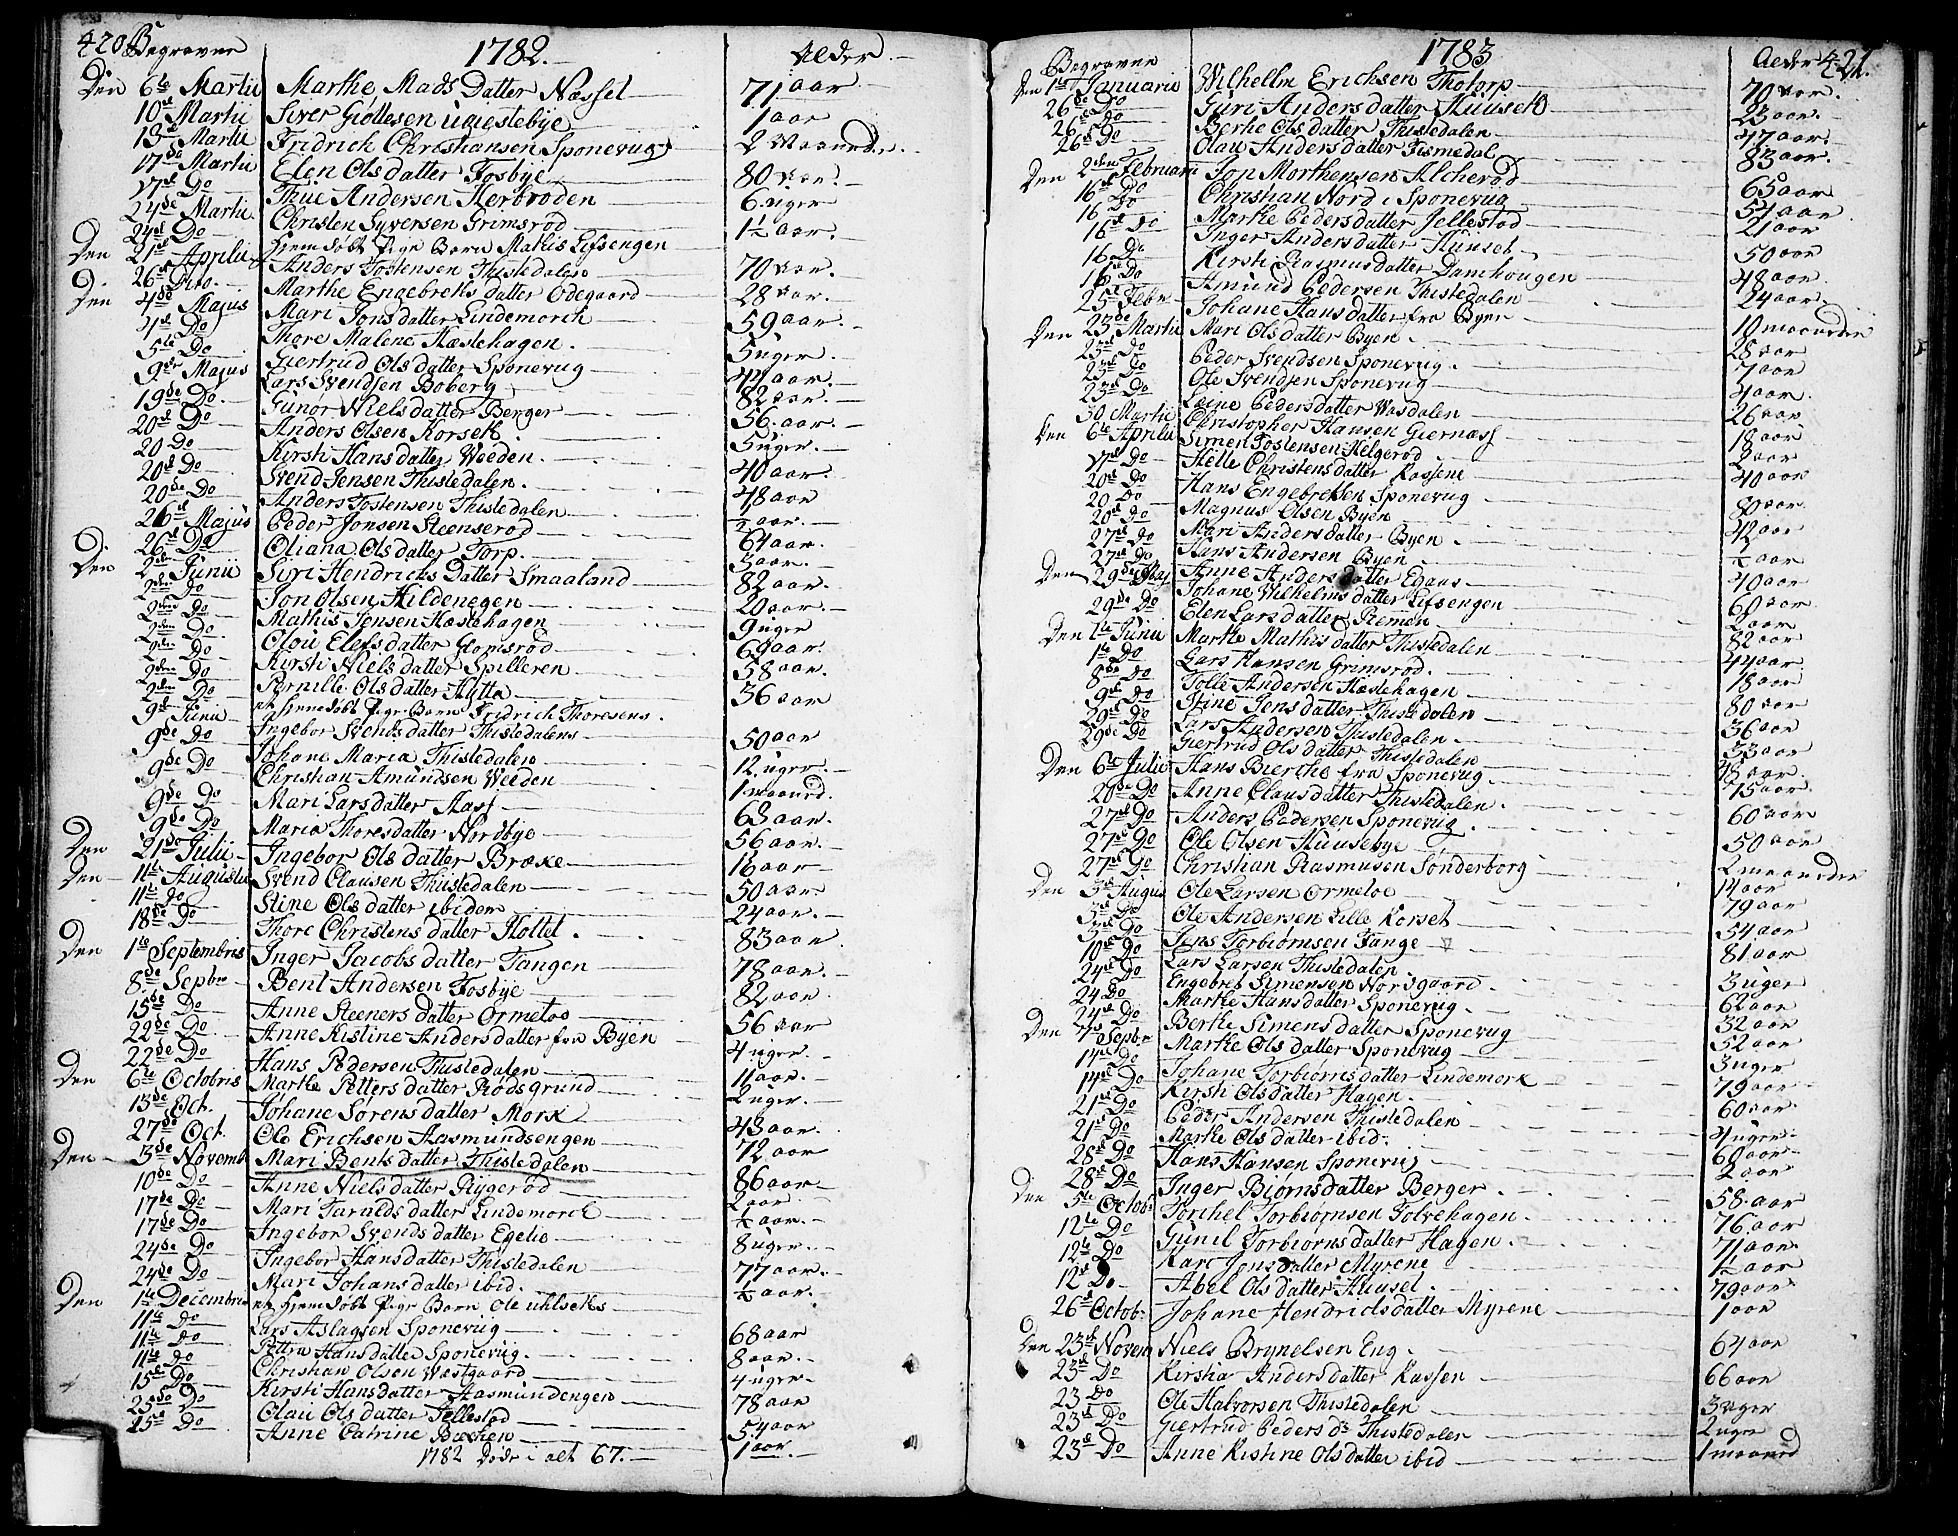 420 Begraven 1782. Alder.
Den 6te Martii Marthe Mads Datter Nössel 71 aar
10de Martii Siver Giöttesen Uglestebye 1 aar
13de Martii Fridrich Christiansen Sponevug 2 Maaneder
17de Martii Elen Olsdatter Fosbye 80 aar.
17de Do Thue Andersen Herbroden 6 uger
24de Martii Christen Syversen Grimsrød 1½ aar.
24de Do Hiemdøbt Pige Barn Mathis Lefsengen
Den 21de Aprilii Anders Tostensen Thistedalen 70 aar.
26de Dito. Marthe Engebrets datter Ødegaard 28 aar.
Den 4de Majus Mari Jonsdatter Lindemarch 59 aar.
4de Do Thore Malene Hæstehagen. 5 uger.
5te Do Giertrud Olsdatter Sponevug 44 aar.
9de Majus Lars Svendsen Boberg 82 aar.
19de Do. Gunor Nielsdatter Berger 56. aar.
20de Do Anders Olsen Korsek. 5 uger.
20 Do Kirsti Hansdatter Weeden. 40 aar
20de Do Svend Jensen Thistedalen. 48 aar
20de Do Anders Tostensen Thistedalen ½ aar.
26de Majus Peder Jonsen Steenserød 64 aar.
26de Do Oliana Olsdatter Torp. 3 aar.
Den 2den Junii Siri Hendrichs Datter Smaaland 82 aar
2den Do Jon Olsen Hildenegen 20 aar.
2den Do Mathis Jensen Hæstehagen 9 uger
2den Do Olou Elefsdatter Glomsrød 69 aar.
2den Do Kirsti Nielsdatter Spilleren 58 aar.
2den Do Pernille Olsdatter Hytta 36 aar
9de Junii et hiemdøbt Pige Barn Fridrich Thoresens.
9de Do Ingebor Svendsdatter Thistedalens 50 aar
9de Do Johane Maria Thistedalen 12 uger.
Christian Amundsen Weeden 1 maaned.
9de Do Mari Larsdatter Aass 63 aar.
9de Do Maria Thoresdatter Nordbye 56 aar.
Den 21de Julii Ingebor Olsdatter Bræke 16 aar
Den 11te Augustii Svend Clausen Thistedalen 50 aar
11te Do Stine Olsdatter ibidem 24 aar.
18de Do Thore Christens datter Holtet. 83 aar
Den 1te Septembris Inger Jacobs datter Tangen 78 aar.
8de Septbr Bent Andersen Fosbye 82 aar
15de Do Anne Steeners datter Ørmetoo 56 aar
22de Do Anne Kistine Andersdatter fra Byen 4 uger.
22de Do Hans Pedersen Thistedalen 11 aar.
Den 6te Octobris Marthe Petters datter Rødsgrund 2 uger.
13de Oct. Johane Sørensdatter Mork 43 aar.
27de Oct. Ole Erichsen Aasmundsengen 72 aar
Den 3de Novemb Mari Bents datter Thistedalen 86 aar
10de Do Anne Nielsdatter Rygerød 2 aar.
17de Do Mari Taraldsdatter Lindemarch ½ aar.
17de Do Ingebor Svendsdatter Egelie 8 uger.
24de Do Ingebor Hansdatter Thistedalen 77 aar.
24de Do Mari Johansdatter ibid. ½ aar.
Den 1te Decembris et hiemdøbt Pige Barn Ole uhlseks
11te Do Lars Aslagsen Sponevug 68 aar
11te Do Pettra Hansdatter Sponevug. 8 aar.
11te Do Christian Olsen Westgaard 4 uger
15de Do Kirsti Hansdatter Aasmundengen 78 aar
25de Do Olau Olsdatter Jellestad 54 aar
25de Do Anne Catrine Becken 1 aar.
1782 Døde i alt 67.
Begraven 1783 Alder 421.
Den 1te Januarii Wilhelm Erichsen Thotorp 70 aar.
26de Do Guri Andersdatter Huusek 23 aar.
26de Do Berthe Olsdatter Thistedalen 47 aar.
26de Do Olau Andersdatter Fismedal 83 aar.
Den 2den Februarii Jon Morthensen Alcherød 65 aar
16de Do Christian Nord i Sponevug 54 aar
16 Do Marthe Pedersdatter Jellestad 21 aar
16de Do Inger Andersdatter Huuset 50 aar
16 Do Kirsti Rasmusdatter Damhougen 48 aar
16de Do Amund Pedersen Thistedalen 24 aar
25de Febr Johane Hansdatter fra Byen 10 maaneder
Den 23de Martii Mari Olsdatter Byen 28 aar
23de Do Peder Svendsen Sponevug. 7 aar
23de Do Ole Svendsen Sponevug 4 aar.
23de Do Leine Pedersdatter Wasdalen 26 aar
30 Martii Christopher Hansen Giernæss 18 aar
Den 6te Aprilii Simen Tostensen Helgerød 8 aar
17de Do Helle Christensdatter Kassene 40 aar
20de Do Hans Engebretsen Sponevug 80 aar
20 Do Magnus Olsen Byen 42 aar
20de Do Mari Andersdatter Byen. ½ aar
27de Do Hans Andersen Byen 40 aar
27de Do Anne Andersdatter Egaas 60 aar
Den 29de Maj Johane Wilhelmsdatter Lefsengen 2 aar
29de Do Elen Larsdatter Remen 82 aar
Den 1te Junii Marthe Mathisdatter Thistedalen 44 aar
1te Do Lars Hansen Grimsrød. 18 aar
8de Do Tolle Andersen Hæstehagen 80 aar
9de Do Stine Jensdatter Thistedalen 36 aar
29de Do Lars Andersen Thistedalen 33 aar
29de Do Giertrud Olsdatter Thistedalen 43 aar.
Den 6te Julii Hans Bierche fra Sponevug. 15 aar
20de Do Anne Clausdatter Thistedalen. 60 aar
27de Do Anders Pedersen Sponevug. 50 aar
27de Do Ole Olsen Huusebye 2 maaneder
27de Do Christian Rasmusen Sønderborg 14 aar
Den 3de Augus Ole Larsen Ørmetoe 79 aar
3de Do Ole Andersen Lille Korset 54 aar
10de Do Jens Torbiørnsen Tange 81 aar
24de Do Lars Larsen Thistedalen. 3 uger
24 Do Engebret Simensen Nordgaard. 62 aar
24de Do Marthe Hansdatter Sponevug. 32 aar
Den 7de Septbr Berthe Simensdatter Sponevug 52 aar
14de Do Marthe Olsdatter Sponevug 3 uger
14de Do Johane Torbiørnsdatter Lindemork 79 aar
21de Do Kirsti Olsdatter Hagen. 60 aar.
21de Do Peder Andersen Thistedalen 4 uger
28de Do Marthe Olsdatter ibid. 60 aar
28de Do Hans Hansen Sponevug 2 aar
Den 5te Octobr Inger Biørnsdatter Berger. 58. aar
12te Do Torchel Torbiørnsen Tolvehagen. 76 aar
12te Do Gunil Torbiørnsdatter Hagen. 71 aar
12de Do Kari Jonsdatter Myrene 1½ aar
Abel Olsdatter Huusel 79 aar
26de Octob. Johane Hendrichsdatter Myrene 1 aar
Den 23de Novem Niels Brynelsen Eng. 64 aar
23de Do Kirstia Andersdatter Kassen 66 aar
23 Do Ole Halvorsen Thistedalen 3 uger
23de Do Giertrud Pedersdr Thistedalen 2 uger
23de Do Anne Kistine Olsdatter ibid 1 maaned